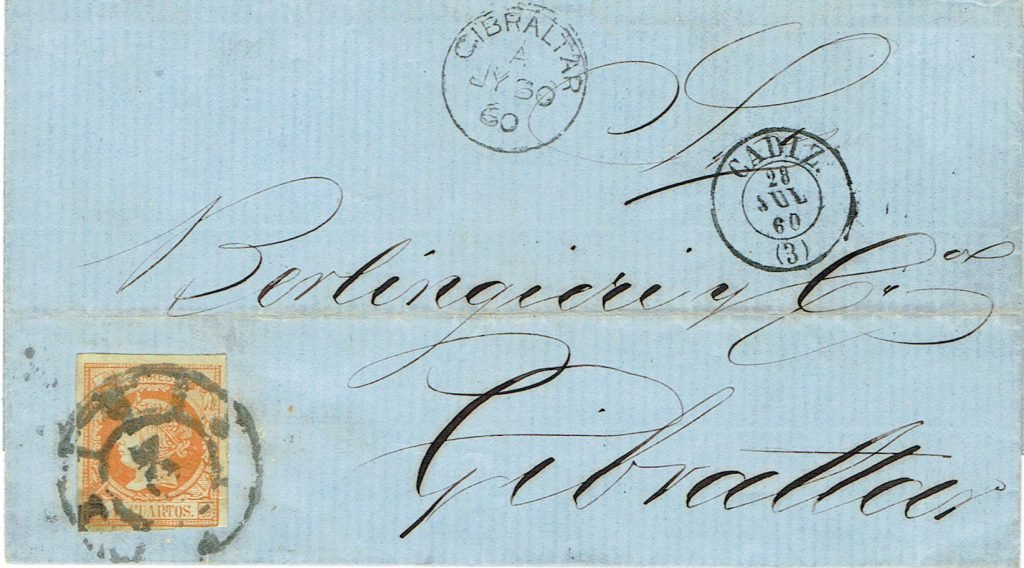 GIBRALTAR
A
JY 30
60
CADIZ.
28
JUL
60
(3)
Berlingieri y Cia
Gibraltar
CUARTOS.